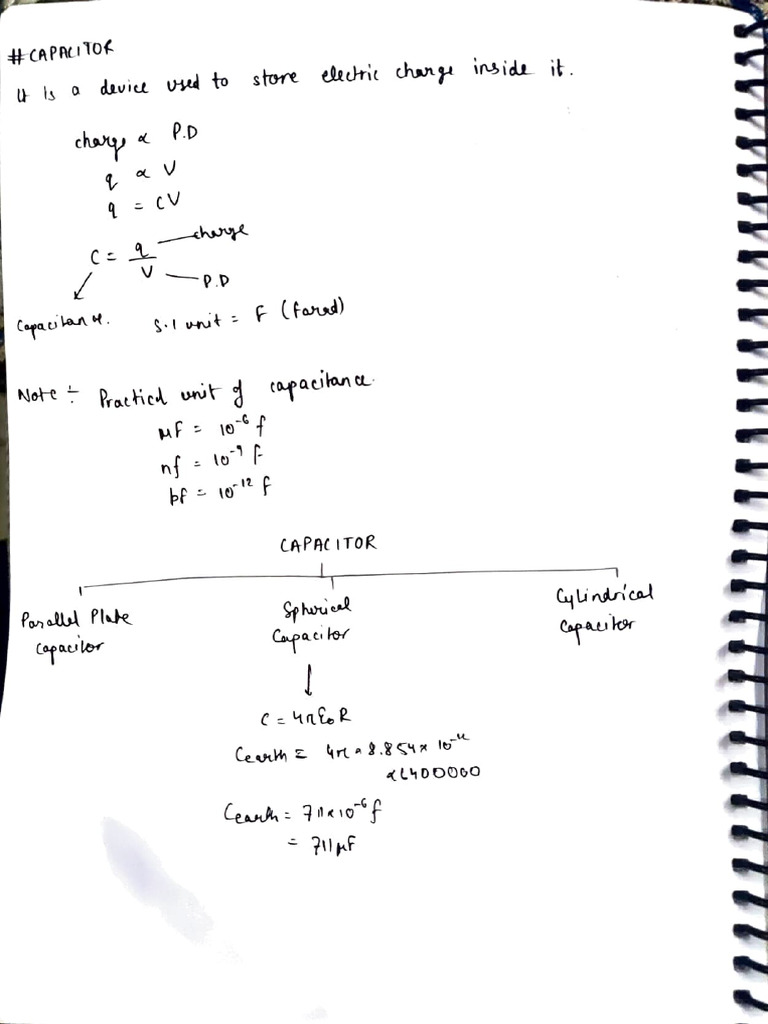 #CAPACITOR
It is a device used to store electric charge inside it.
charge ∝ P.D
q ∝ V
q = CV
C = q/V
charge
P.D
Capacitance. S.I unit = F (farad)
Note ÷ Practical unit of capacitance.
μF = 10⁻⁶ f
nf = 10⁻⁹ f
pf = 10⁻¹² f
CAPACITOR
Parallel Plate Capacitor
Spherical Capacitor
Cylindrical Capacitor
C = 4πε₀R
Cearth = 4π × 8.854 × 10⁻¹²
× 6400000
Cearth = 711×10⁻⁶ f
= 711μF